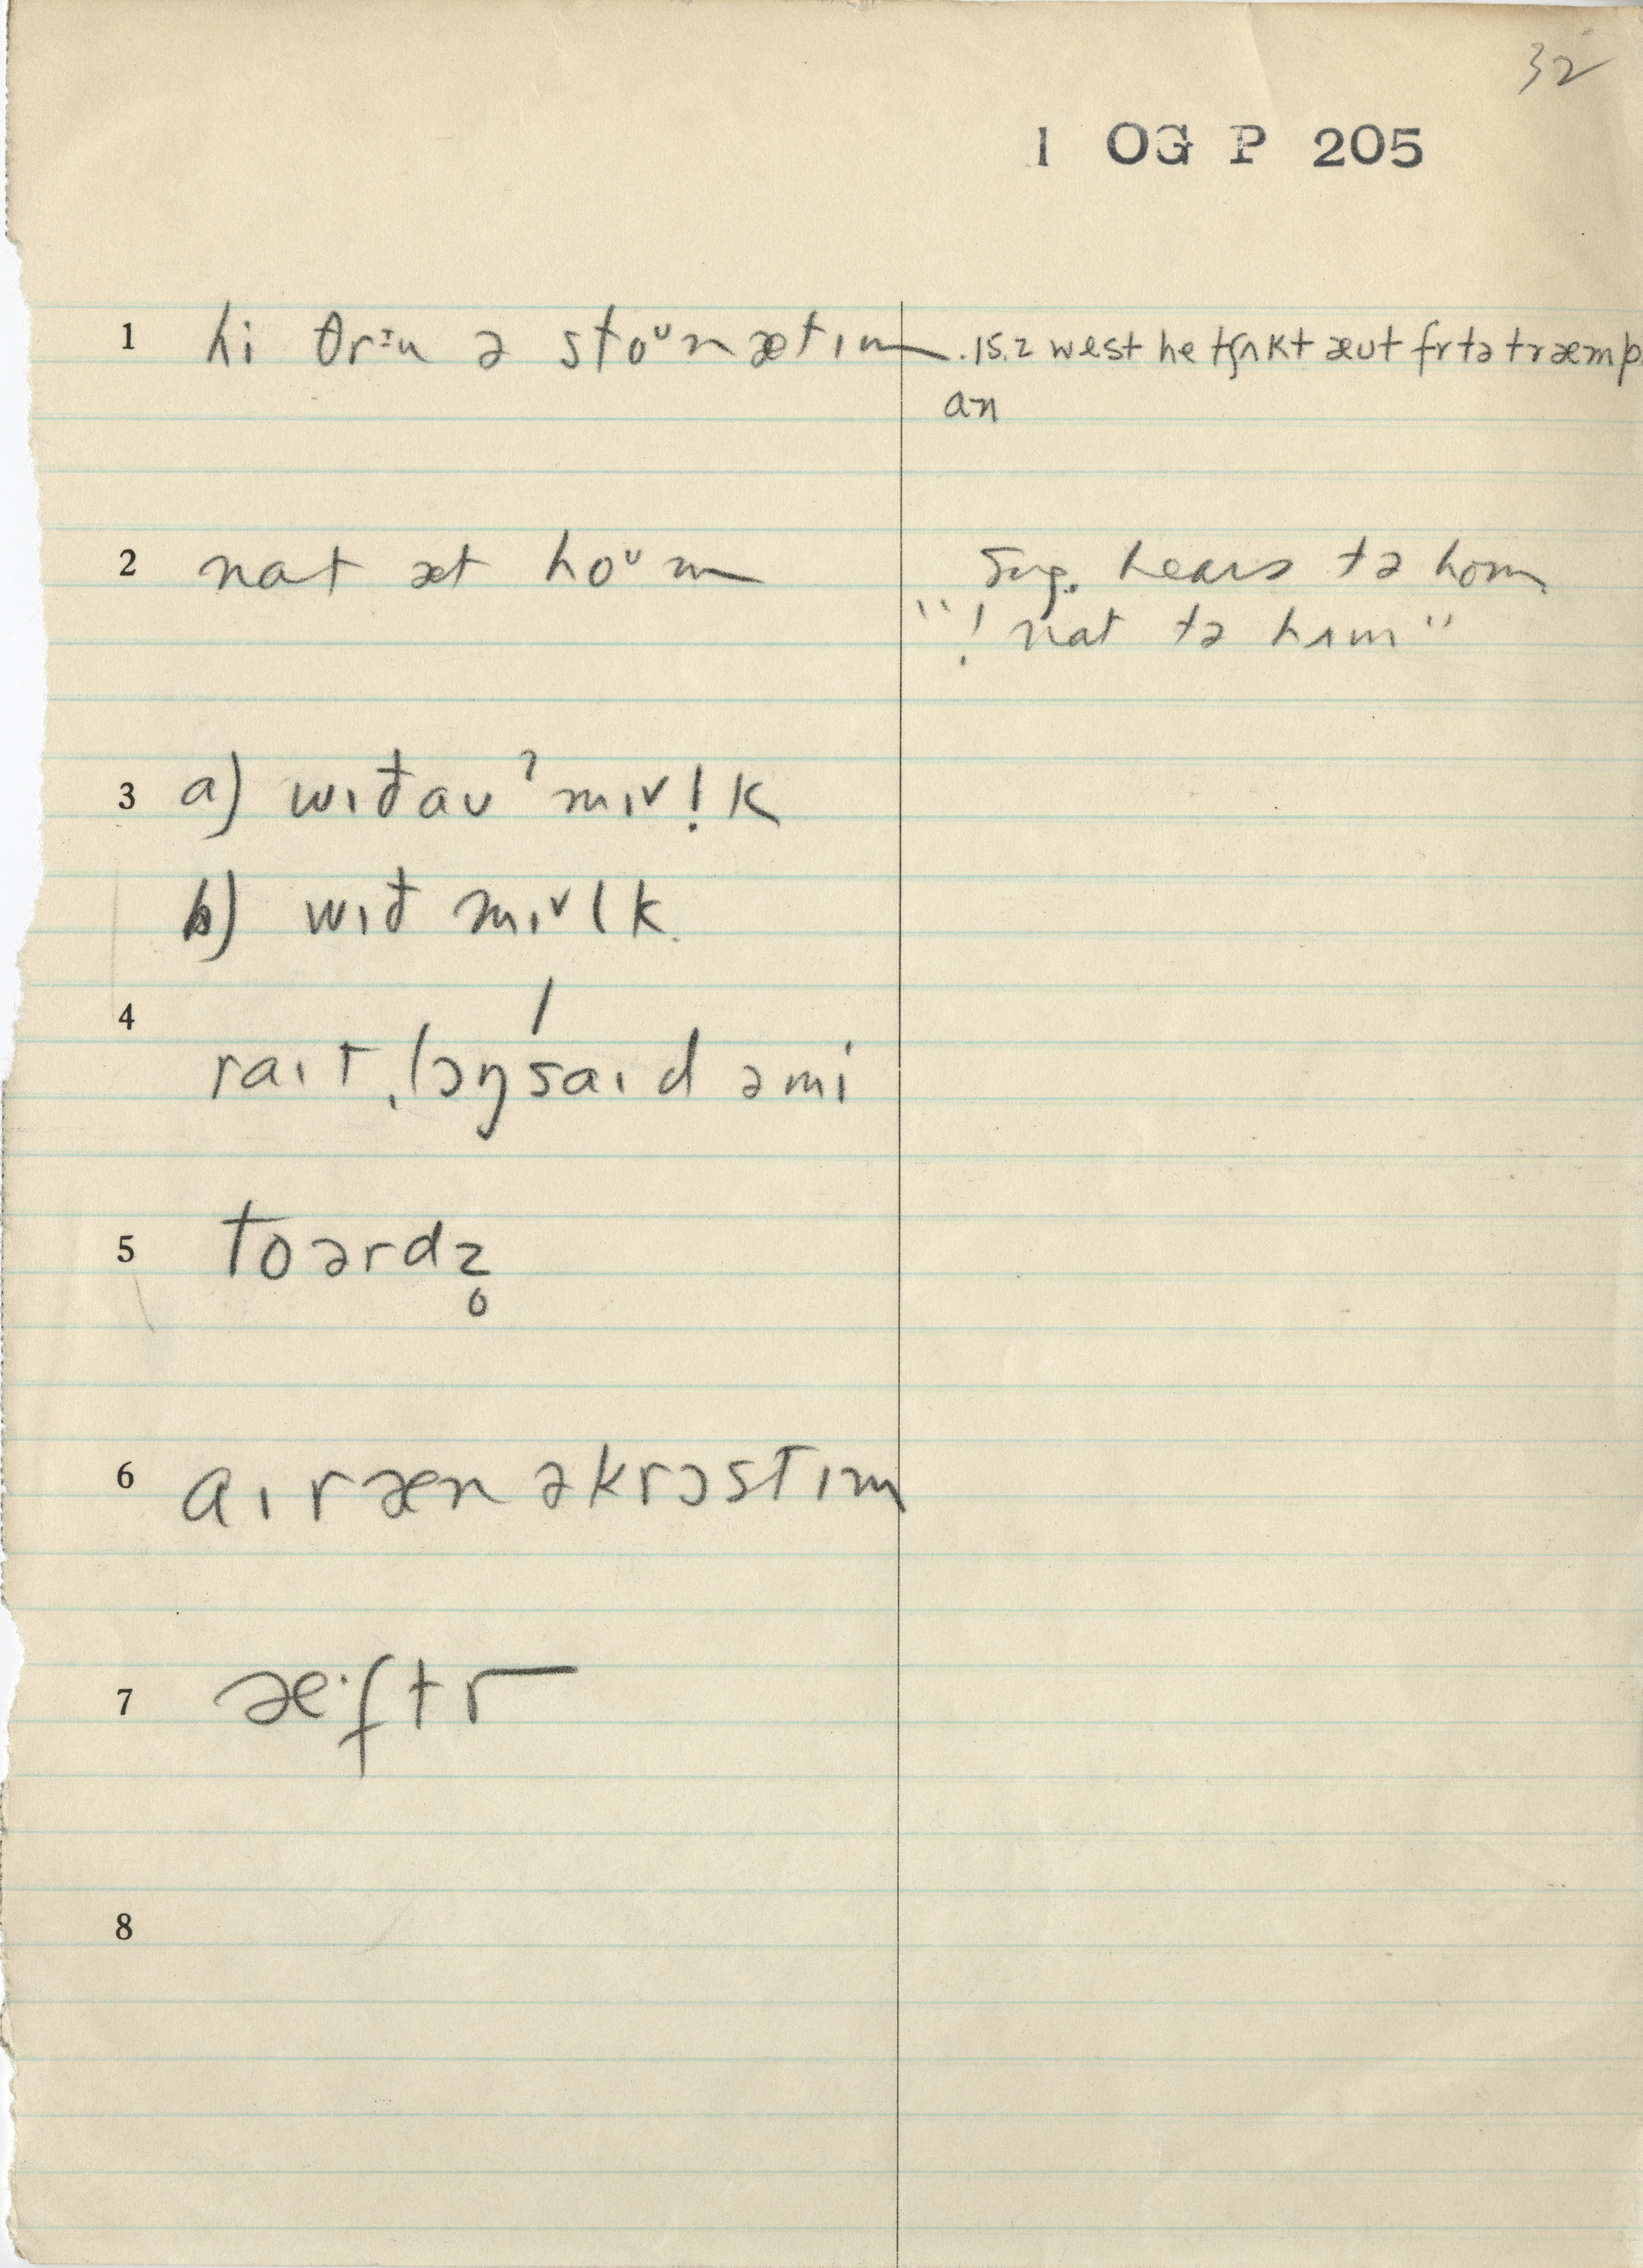 32
1 OG P 205
1 hi θrɪu ə stoᵘn æt ɪm .15.2 west he tʃʌkt æut fr tə træmp
an
2 nat æt hoᵘm Sug. hears tə hom
"! nat tə hʌm"
3 a) wɪđaʊ ˀmɪᵛḷk
b) wɪđ mɪᵛlk
4
raɪt ˌlɔŋˈsaɪd ə mi
5 toərdz̥
6 aɪ ræn əkrɔst ɪm
7 æ·ftr
8